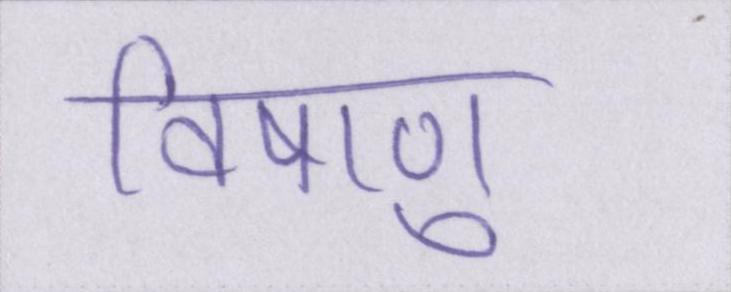 विषाणु